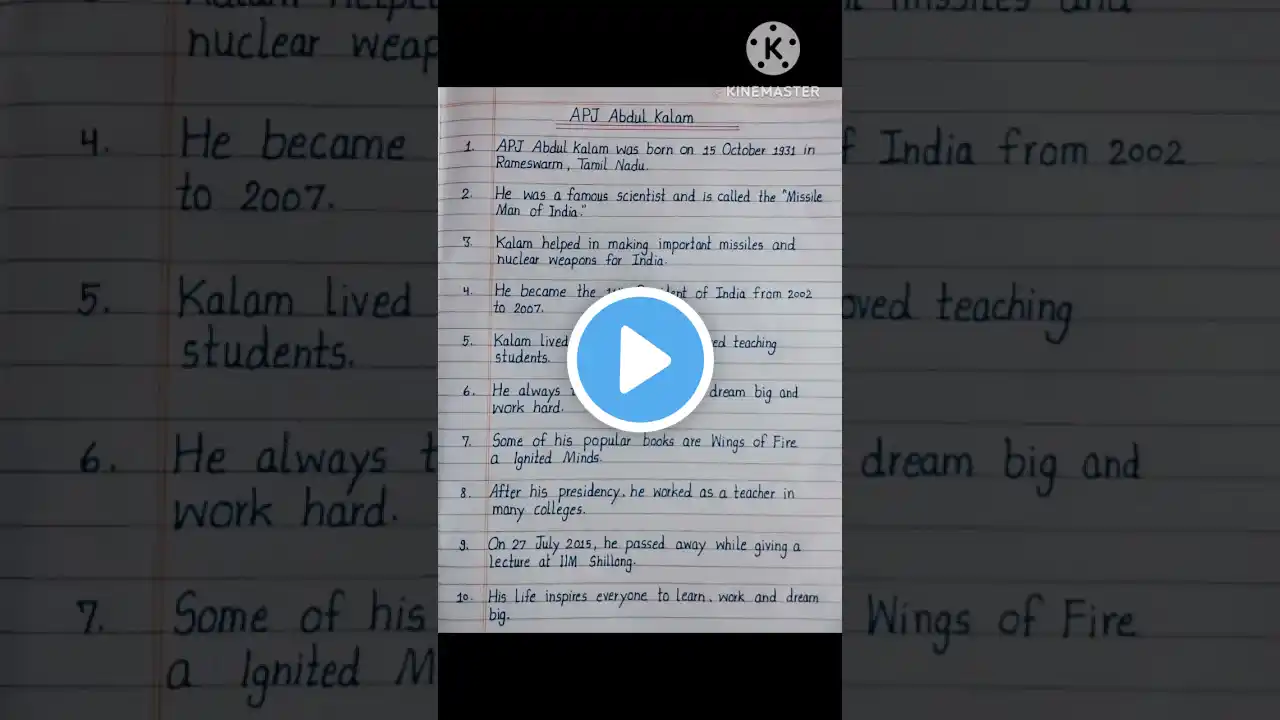 KINEMASTER
APJ Abdul Kalam
1. APJ Abdul Kalam was born on 15 October 1931 in
Rameswarm, Tamil Nadu.
2. He was a famous scientist and is called the "Missile
Man of India."
3. Kalam helped in making important missiles and
nuclear weapons for India.
4. He became the of India from 2002
to 2007.
5. Kalam lived teaching
students.
6. He always dream big and
work hard.
7. Some of his popular books are Wings of Fire
a Ignited Minds.
8. After his presidency, he worked as a teacher in
many colleges.
9. On 27 July 2015, he passed away while giving a
lecture at IIM Shillong.
10. His life inspires everyone to learn, work and dream
big.
nuclear
4. He became India from 2002
to 2007.
5. Kalam lived teaching
students.
6. He always dream big and
work hard.
7. Some of his Wings of Fire
a Ignited